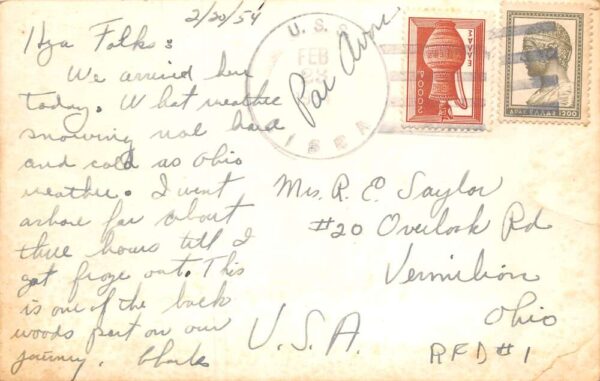 2/20/54
Hya Folks:
We arrived here
today. What weather
snowing real hard
and cold as Ohio
weather. I went
ashore for about
three hours till I
got froze out. This
is one of the back
woods port on our
journey. Charles
U.S.S.
FEB
Par Avion
ΕΛΛΑΣ
ΔΡΑΧ. ΕΛΛΑΣ
Mrs. R. E. Saylor
#20 Overlook Rd
Vermilion
Ohio
U.S.A.
RFD #1